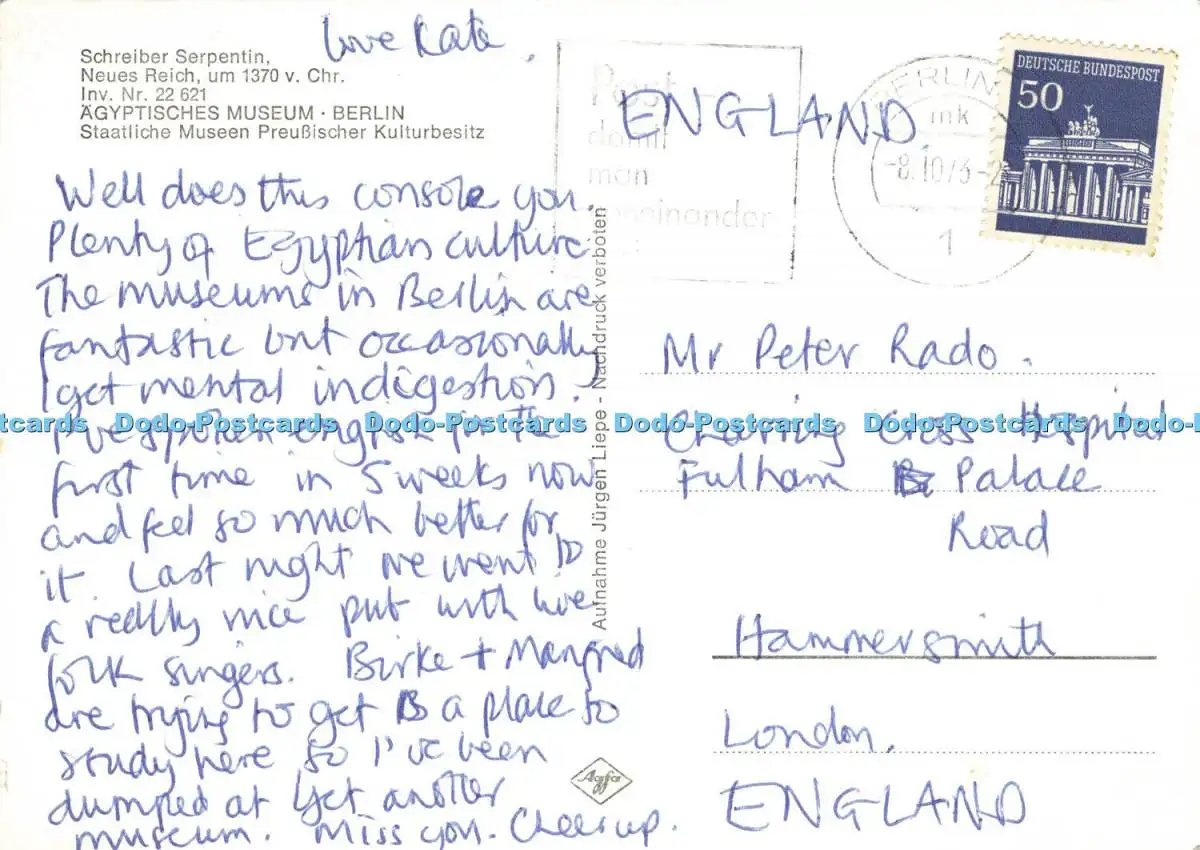 Love Kate.
Schreiber Serpentin,
Neues Reich, um 1370 v. Chr.
Inv. Nr. 22 621
ÄGYPTISCHES MUSEUM · BERLIN
Staatliche Museen Preußischer Kulturbesitz
Well does this console you.
Plenty of Egyptian culture.
The museums in Berlin are
fantastic but occasionally
I get mental indigestion.
I've spoken english for the
first time in 5 weeks now
and feel so much better for
it. Last night we went to
a really nice pub with live
folk singers. Birke + Manfred
are trying to get a place to
study here so I've been
dumped at yet another
museum. Miss you. Cheer up.
Aufnahme Jürgen Liepe - Nachdruck verboten
Agfa
Post -
damit
man
ENGLAND
BERLIN
mk
-8.10.73-2
1
DEUTSCHE BUNDESPOST
50
Mr Peter Rado.
Charing Cross Hospital
Fulham Palace
Road
Hammersmith
London.
ENGLAND
Dodo-Postcards Dodo-Postcards Dodo-Postcards Dodo-Postcards Dodo-Postcards